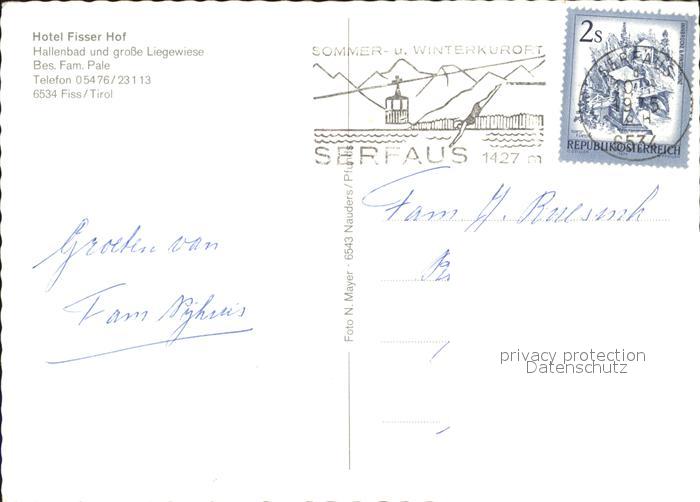 Hotel Fisser Hof
Hallenbad und große Liegewiese
Bes. Fam. Pale
Telefon 05476/23113
6534 Fiss/Tirol
SOMMER- u. WINTERKURORT
SERFAUS 1427 m
2s
SERFAUS
REPUBLIK ÖSTERREICH
Foto N. Mayer · 6543 Nauders/
Groeten van
Fam Nijhuis
Fam J.
privacy protection
Datenschutz